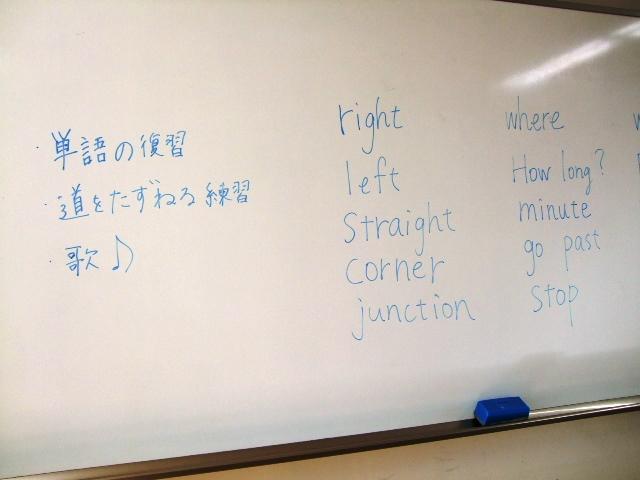 ・単語の復習
・道をたずねる練習
・歌♪
right
left
Straight
corner
junction
where
How long?
minute
go past
stop